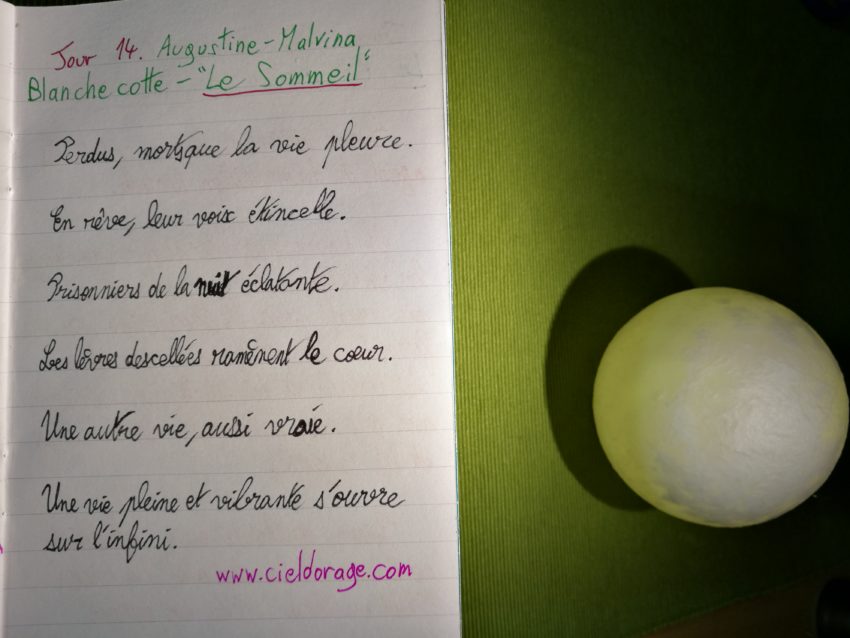 Jour 14. Augustine-Malvina
Blanchecotte - "Le Sommeil"
Perdus, morts que la vie pleure.
En rêve, leur voix étincelle.
Prisonniers de la nuit éclatante.
Les lèvres descellées ramènent le cœur.
Une autre vie, aussi vraie.
Une vie pleine et vibrante s'ouvre
sur l'infini.
www.cieldorage.com